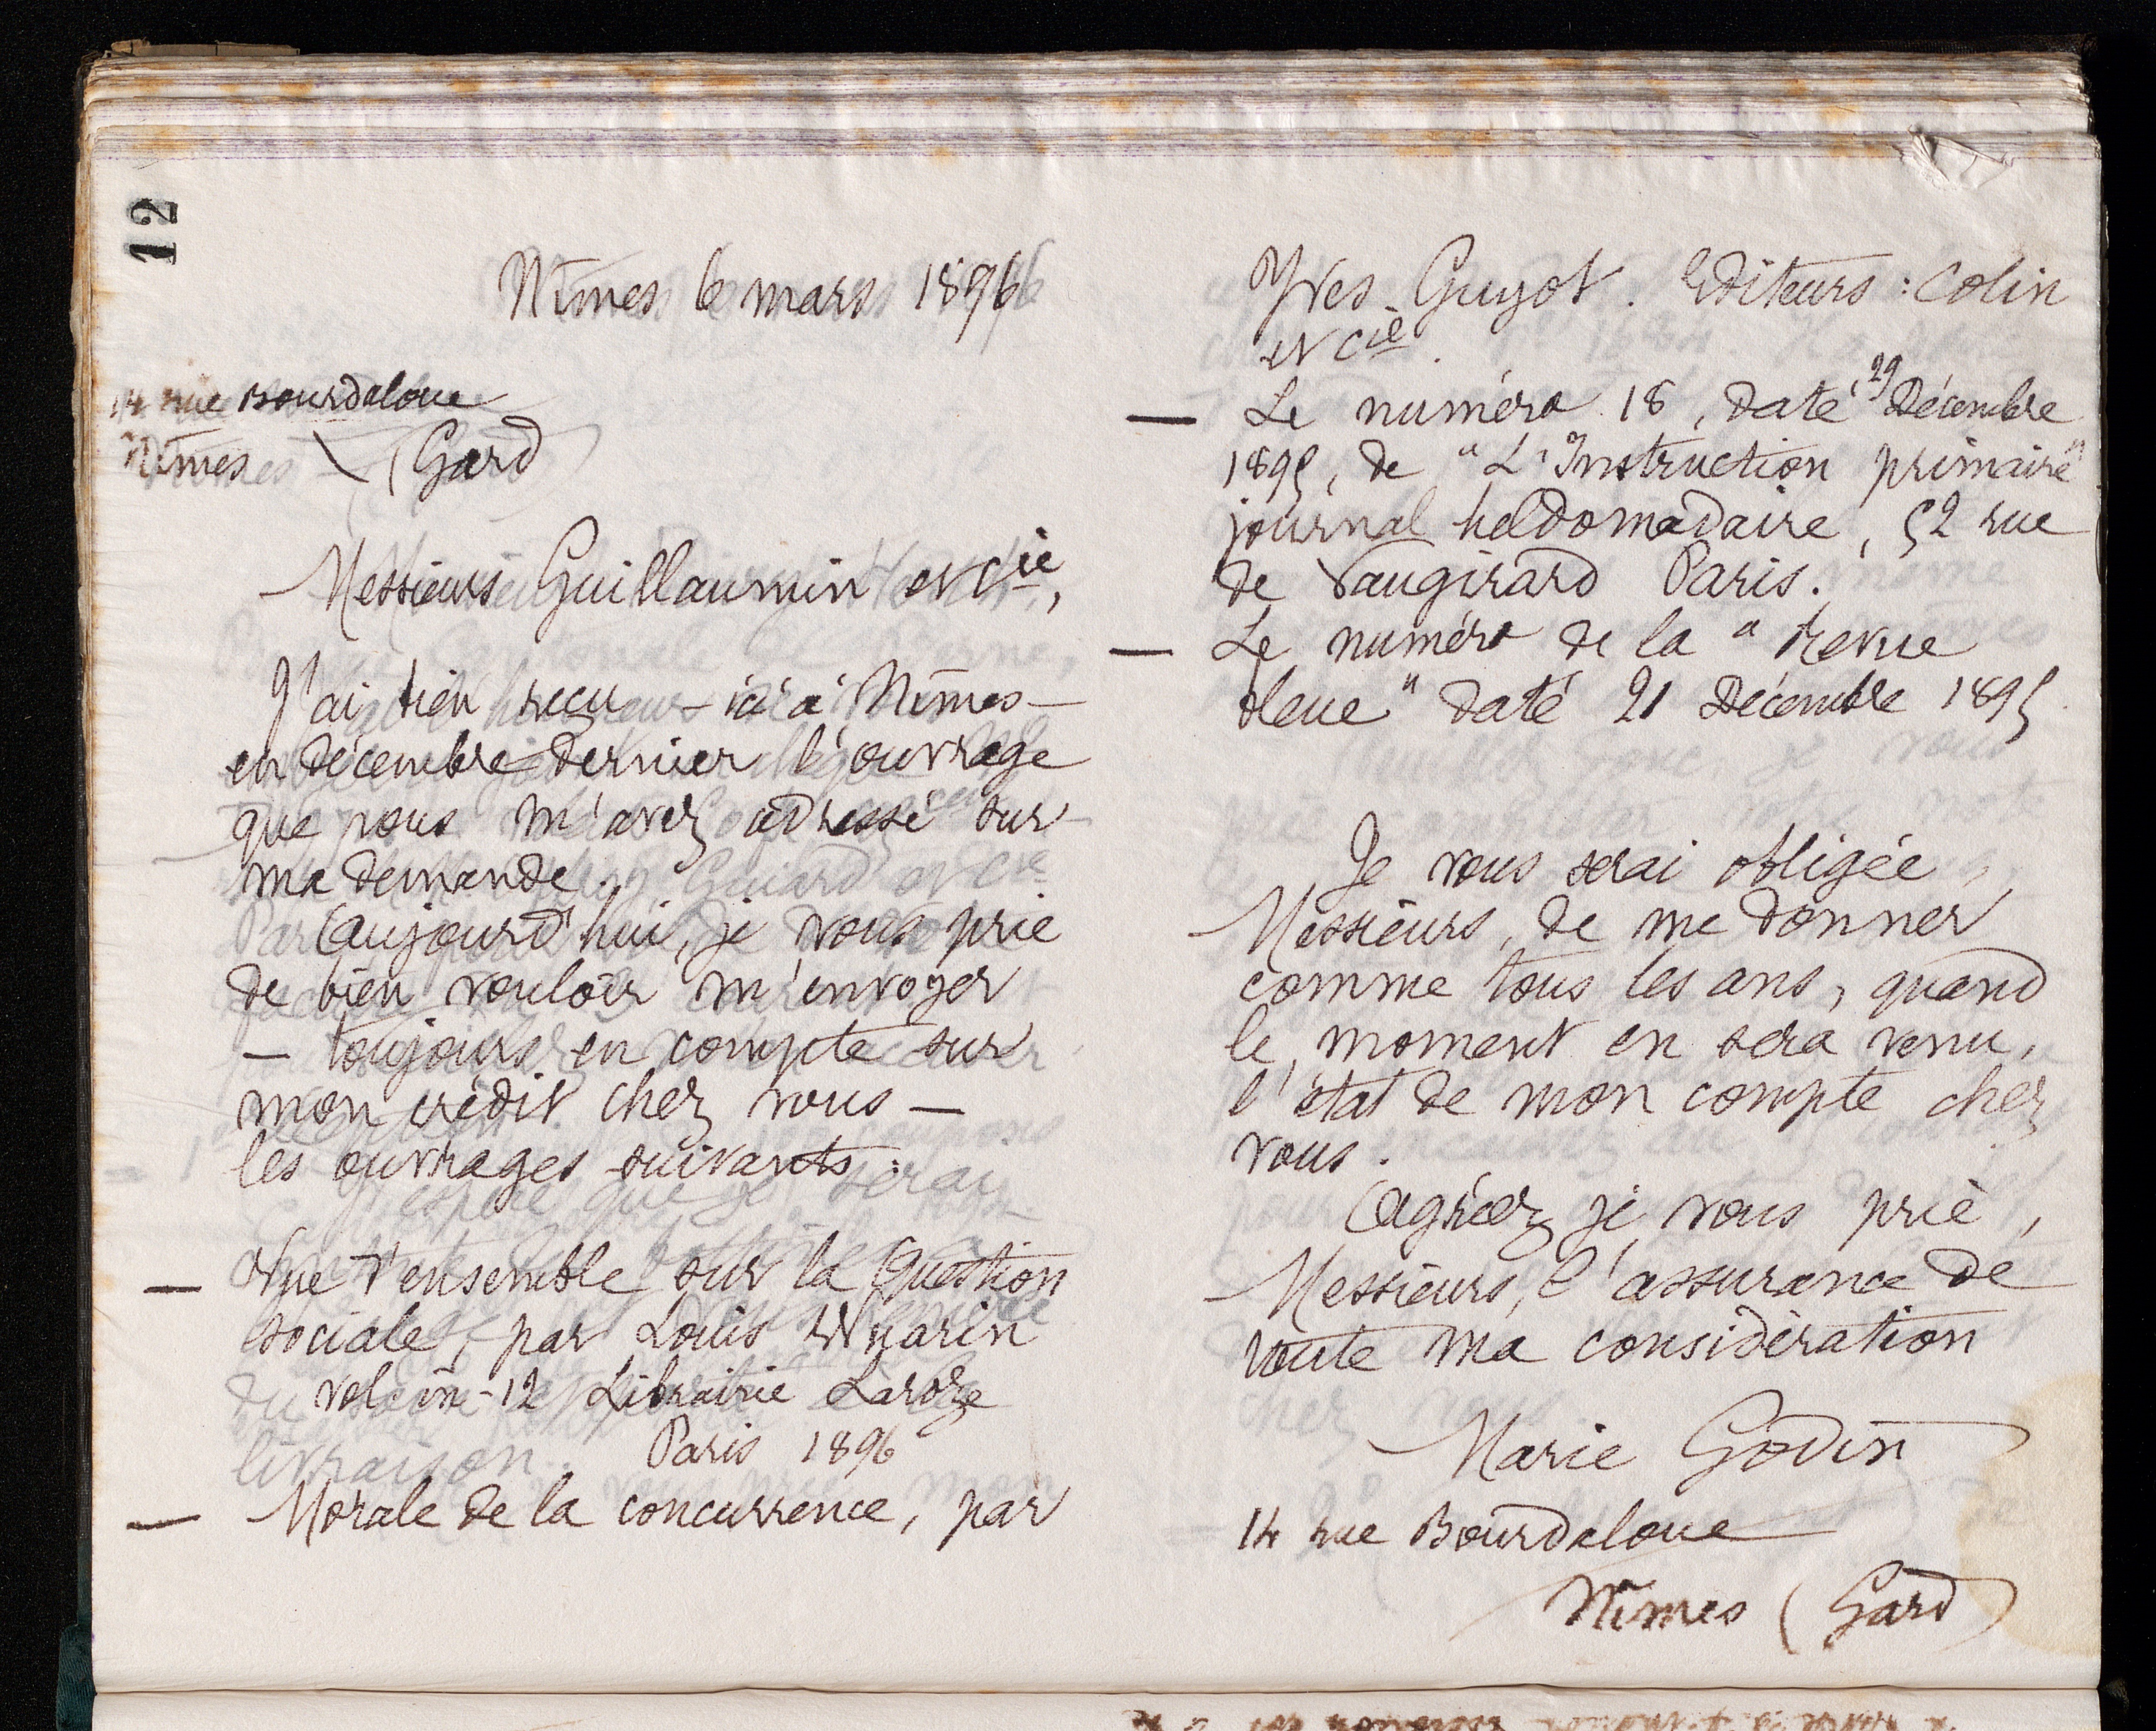 12
Nîmes 6 mars 1896
14 rue Bourdaloue
Nîmes (Gard)
Messieurs Guillaumin et Cie,
J'ai bien reçu – ici à Nîmes –
en décembre dernier l'ouvrage
que vous m'avez adressé sur
ma demande.
Aujourd'hui, je vous prie
de bien vouloir m'envoyer
– toujours en compte sur
mon crédit chez vous –
les ouvrages suivants :
— Vue d'ensemble sur la Question
sociale, par Louis Wuarin
vol. in-12 Librairie Larose
Paris 1896
— Morale de la concurrence, par
Yves-Guyot. Editeurs : Colin
et Cie.
— Le numéro 18, daté 29 Décembre
1895, de "L'Instruction primaire"
journal hebdomadaire, 52 rue
de Vaugirard Paris.
— Le numéro de la "Revue
bleue" daté 21 Décembre 1895
Je vous serai obligée,
Messieurs, de me donner
comme tous les ans, quand
le moment en sera venu,
l'état de mon compte chez
vous.
Agréez, je vous prie,
Messieurs, l'assurance de
toute ma considération
Marie Godin
14 rue Bourdaloue
Nîmes (Gard)